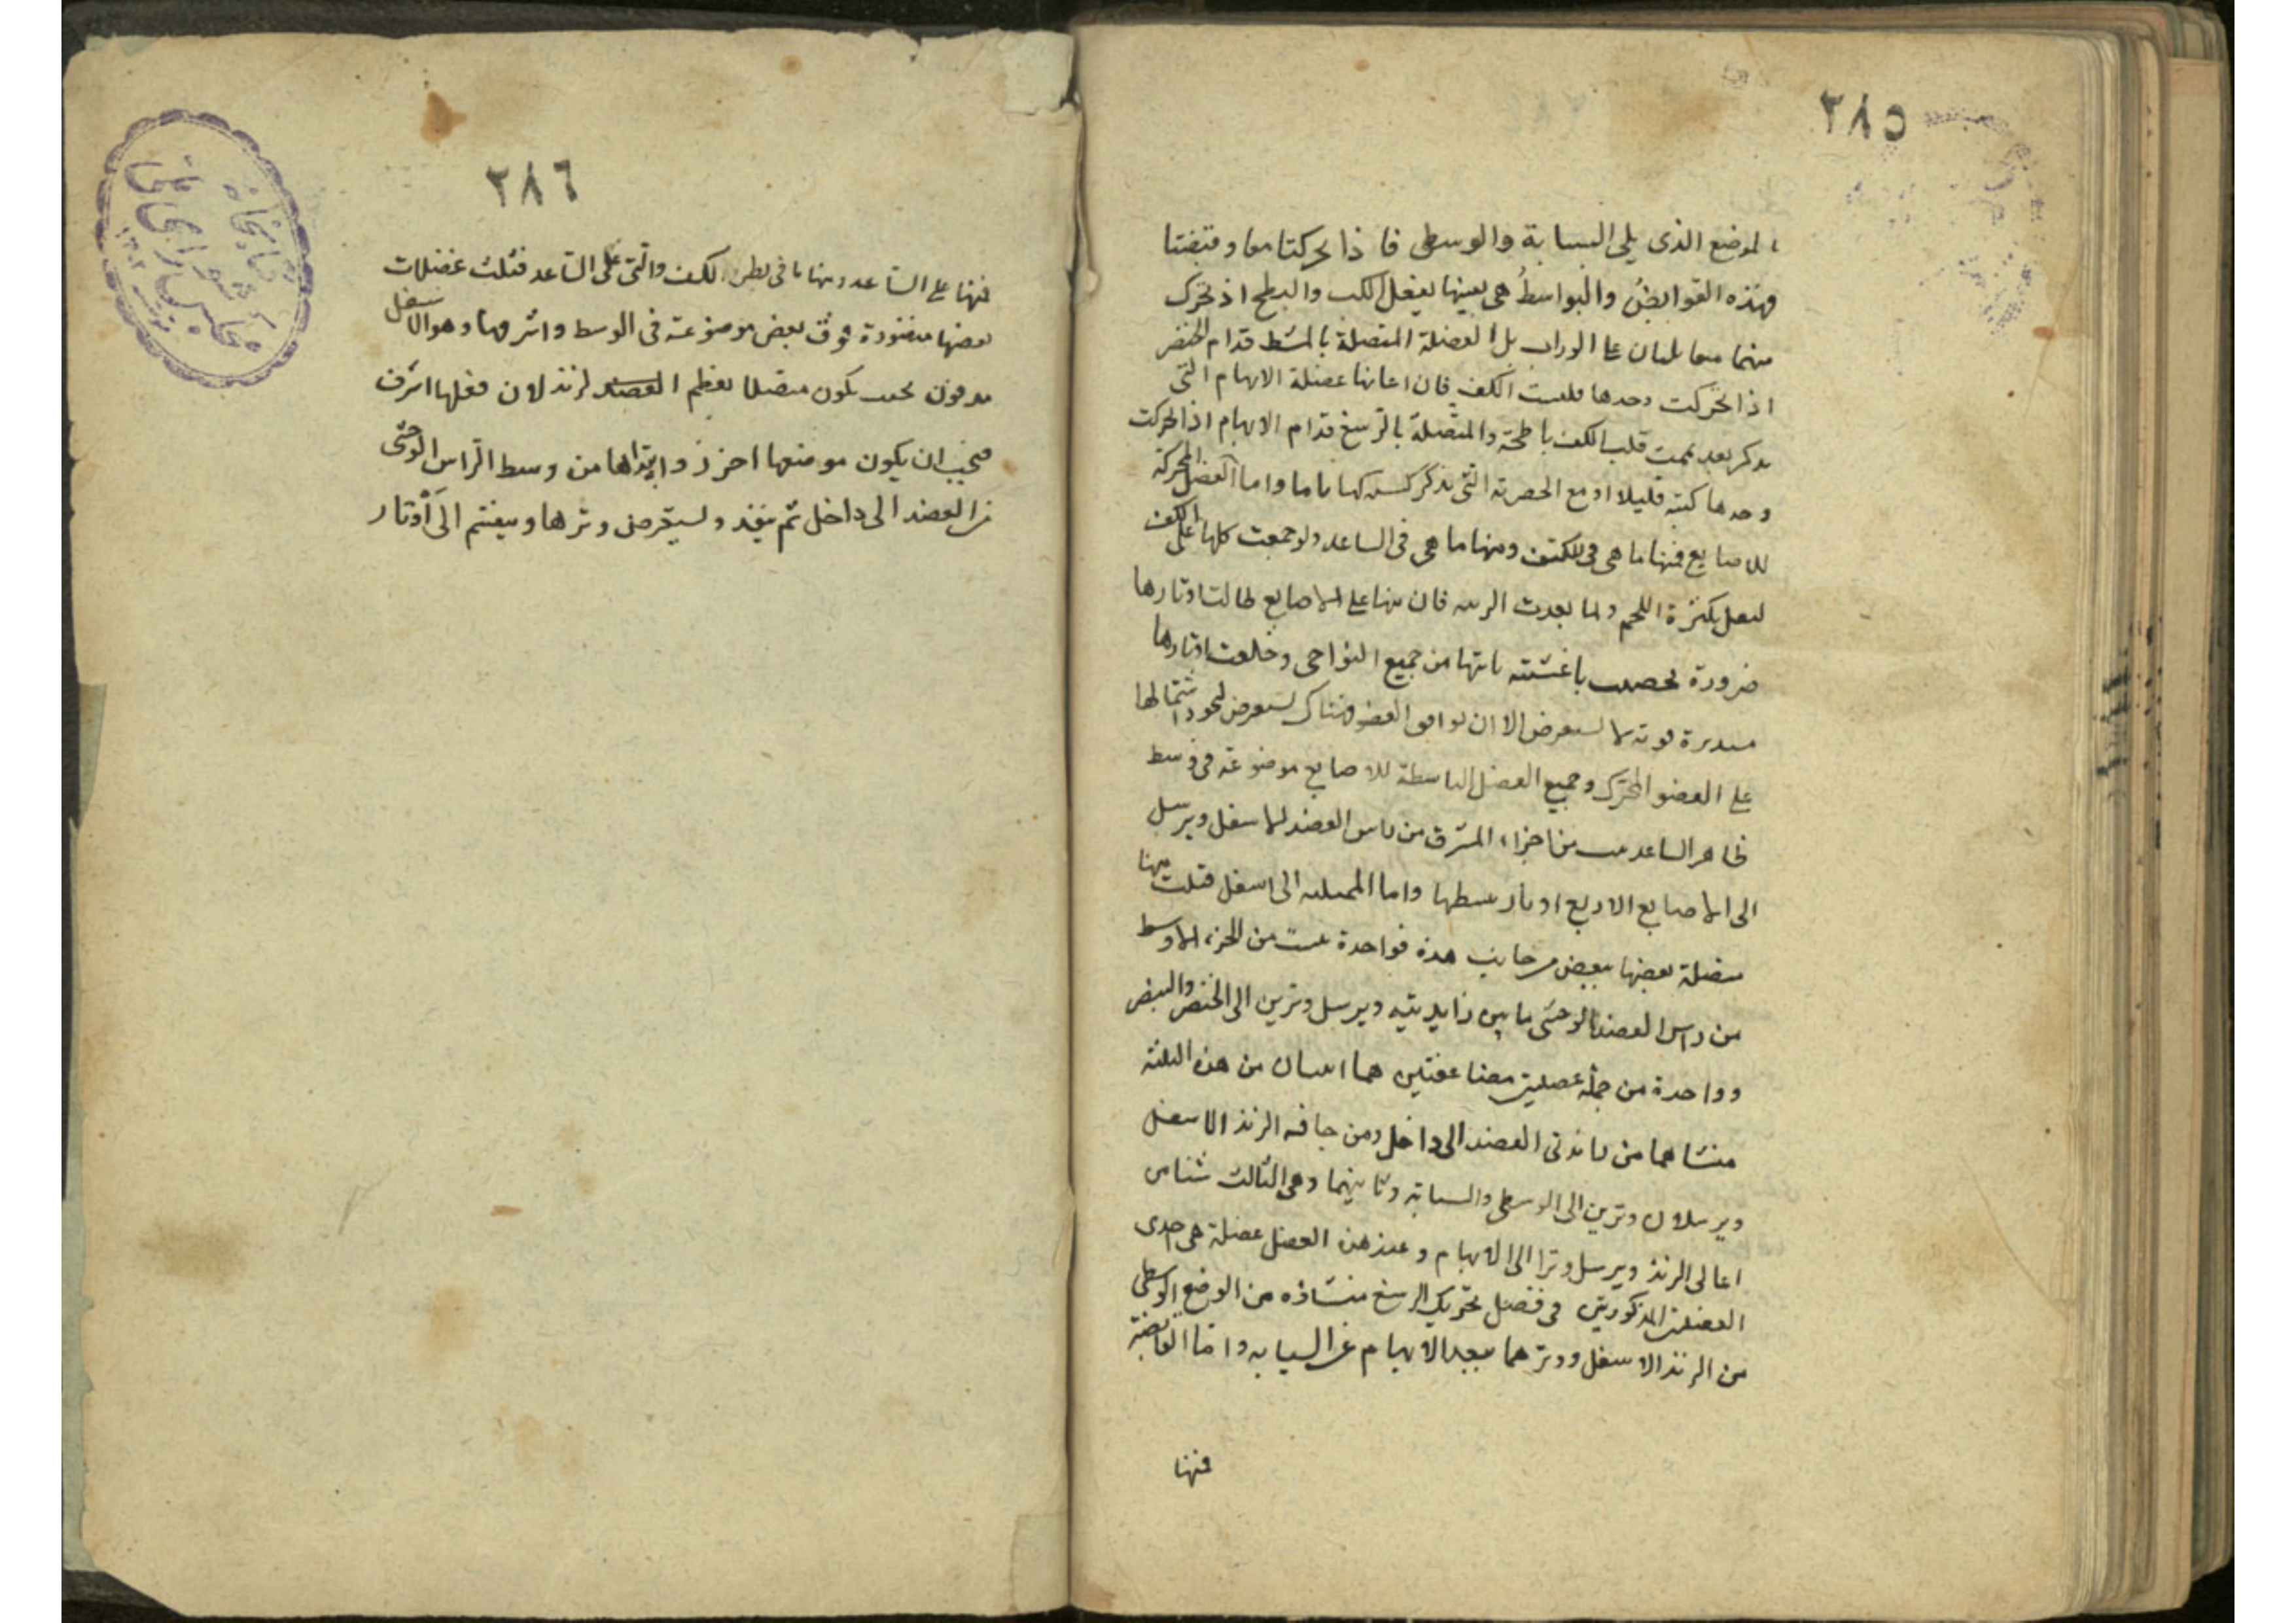 ٢٨٥
الموضع الذى يلى السبابة والوسطى فاذا تحركتا معا وقبضتا
وهذه القوابض والبواسط هى بعينها تفعل الكب والبطح اذ تحرك
منهما متقابلتان على الوراب بل العضلة المتصلة بالمشط قدام الخنصر
اذا تحركت وحدها قلبت الكف فان اعانها عضلة الابهام التى
تذكر بعد تممت قلب الكف باطحة والمتصلة بالرسغ قدام الابهام اذا تحركت
وحدها كبته قليلا او مع الخنصرية التى نذكر كبته كبا تاما واما العضل المحركة
للاصابع فمنها ما هى فى الكف ومنها ما هى فى الساعد ولو جمعت كلها على الكف
لثقل بكثرة اللحم ولما بعدت الرسغية منها عن الاصابع طالت اوتارها
ضرورة فحصنت باغشية تاتيها من جميع النواحى وخلقت اوتارها
مستديرة قوية لا تستعرض الا ان توافى العضو فهناك تستعرض ليجود اشتمالها
على العضو المحرك وجميع العضل الباسطة للاصابع موضوعة فى وسط
ظاهر الساعد من الجزء المشرف من راس العضد الاسفل ويرسل
الى الاصابع الاربع اوتارا تبسطها واما المميلة الى اسفل فثلث منها
متصلة بعضها ببعض من جانب هذه فواحدة تنبت من الجزء الاوسط
من راس العضد الوحشى ما بين زايدتيه ويرسل وترين الى الخنصر والبنصر
وواحدة من جملة عضلتين مضاعفتين هما اثنتان من هذه الثلثة
منشاهما من زايدتى العضد الى داخل ومن حافة الزند الاسفل
ويرسلان وترين الى الوسطى والسبابة وثانيهما وهى الثالث شناس
اعالى الزند ويرسل وترا الى الابهام وعند هذه العضل عضلة هى احدى
العضلتين المذكورتين فى فصل تحريك الرسغ منشاؤه من الوضع الوسطى
من الزند الاسفل ووترهما يبعد الابهام عن السبابه واما القابضة
فمنها
٢٨٦
فمنها على الساعد ومنها ما فى بطن الكف والتى على الساعد فثلث عضلات
بعضها منضودة فوق بعض موضوعة فى الوسط واشرفها وهو الاسفل
مدفون تحت يكون متصلا بعظم العضد لزند لان فعلها اشرف
فيجب ان يكون موضعها احرز وابتداها من وسط الراس الوحشى
من العضد الى داخل ثم ينفذ ويستعرض وترها وينقسم الى اوتار